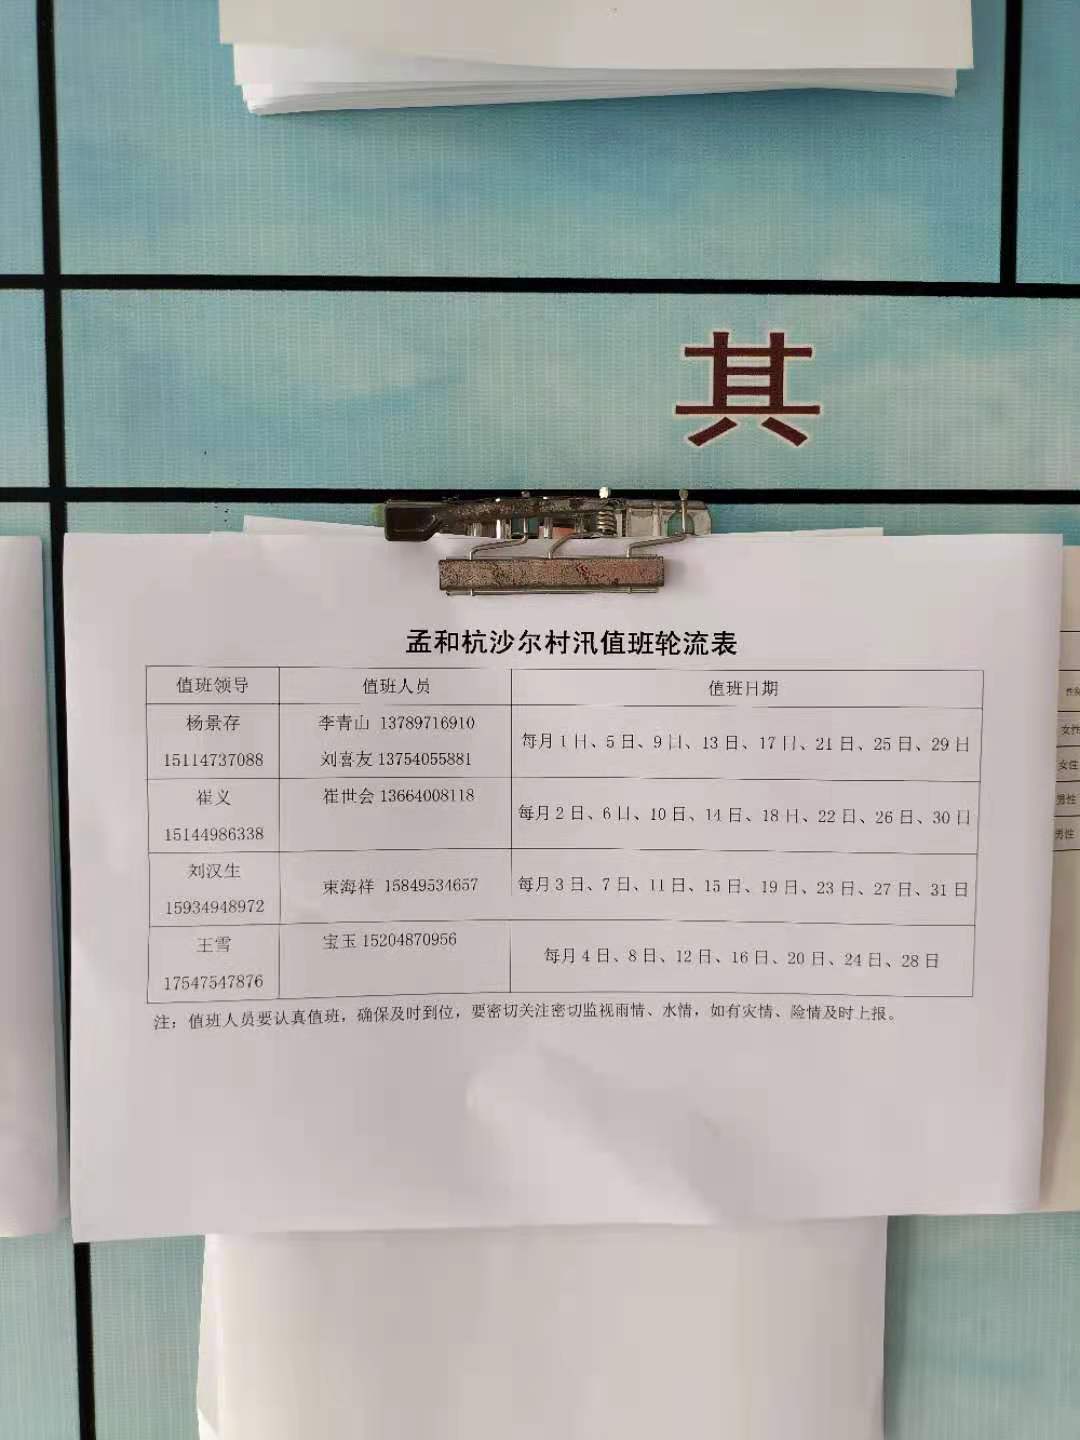 其
孟和杭沙尔村汛值班轮流表
值班领导 值班人员 值班日期
杨景存 李青山 13789716910
15114737088 刘喜友 13754055881
每月1日、5日、9日、13日、17日、21日、25日、29日
崔义 崔世会 13664008118
15144986338
每月2日、6日、10日、14日、18日、22日、26日、30日
刘汉生
15934948972
束海祥 15849534657
每月3日、7日、11日、15日、19日、23日、27日、31日
王雪 宝玉 15204870956
17547547876
每月4日、8日、12日、16日、20日、24日、28日
注：值班人员要认真值班，确保及时到位，要密切关注密切监视雨情、水情，如有灾情、险情及时上报。
女性
女性
男性
男性